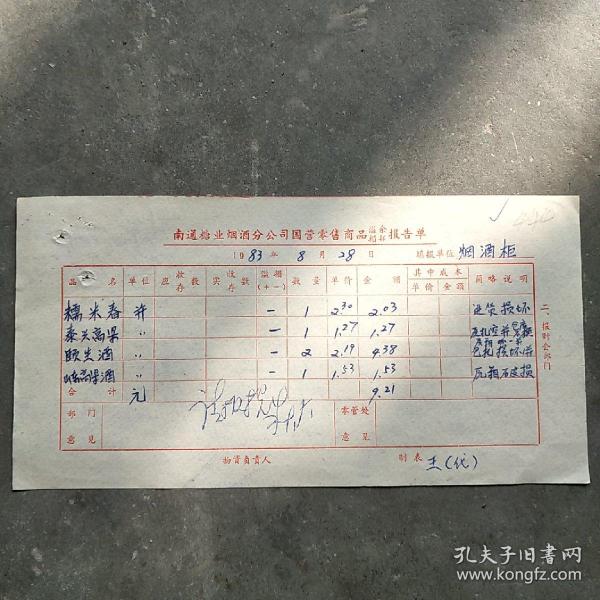 南通糖业烟酒分公司国营零售商品溢余损耗报告单
1983年8月28日 填报单位 烟酒柜
品名 单位 应收存数 实收存数 溢损(+-) 数量 单价 金额 其中成本 单价 金额 简略说明
糯米春 并 - 1 2.30 2.03 进货损坏
泰兴高粱 〃 - 1 1.27 1.27
颐生酒 〃 - 2 2.19 4.38
高粱酒 〃 - 1 1.53 1.53 瓦箱破损
合计 元 9.21
部门意见 零管处意见
物资负责人 制表 王(代)
二、报财会部门
孔夫子旧书网
www.kongfz.com